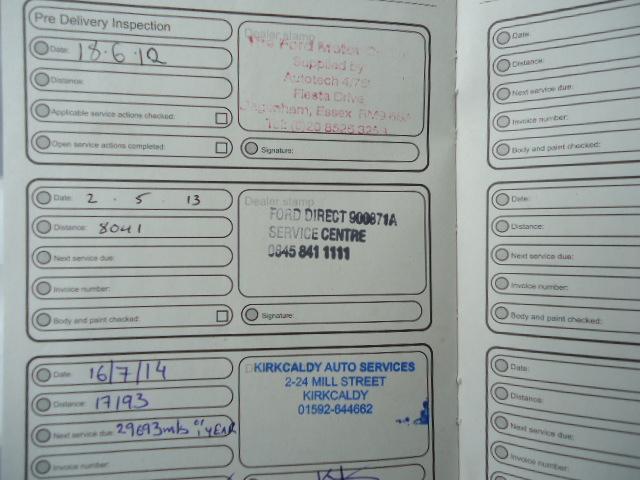 Pre Delivery Inspection
Date: 18.6.12
Distance:
Applicable service actions checked:
Open service actions completed:
Dealer stamp
Ford Motor
Supplied by
Autotech
Fiesta Drive
Dagenham, Essex
Signature:
Date: 2 . 5 . 13
Distance: 8041
Next service due:
Invoice number:
Body and paint checked:
Dealer stamp
FORD DIRECT 900871A
SERVICE CENTRE
0845 841 1111
Signature:
Date: 16/7/14
Distance: 17193
Next service due: 29693mls or 1 YEAR
Invoice number:
KIRKCALDY AUTO SERVICES
2-24 MILL STREET
KIRKCALDY
01592-644662
Date:
Distance:
Next service due:
Invoice number:
Body and paint checked:
Date:
Distance:
Next service due:
Invoice number:
Body and paint checked:
Date:
Distance:
Next service due:
Invoice number: